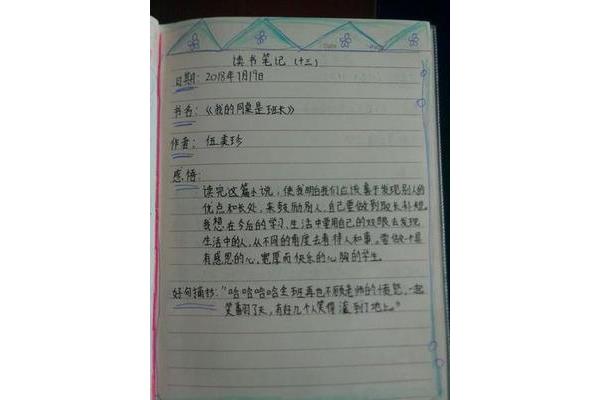 读书笔记（十三）
日期：2018年1月19日
书名：《我的同桌是班长》
作者：伍美珍
感悟：
读完这篇小说，使我明白我们应该善于发现别人的
优点和长处，来鼓励别人，自己要做到取长补短。
我想在今后的学习、生活中要用自己的双眼去发现
生活中的人，从不同的角度去看待人和事。要做一个是
有感恩的心，宽厚而快乐的心胸的学生。
好句摘抄："哈哈哈哈全班再也不顾老师的愤怒，一起
笑翻了天，有好几个人笑得滚到了地上。"